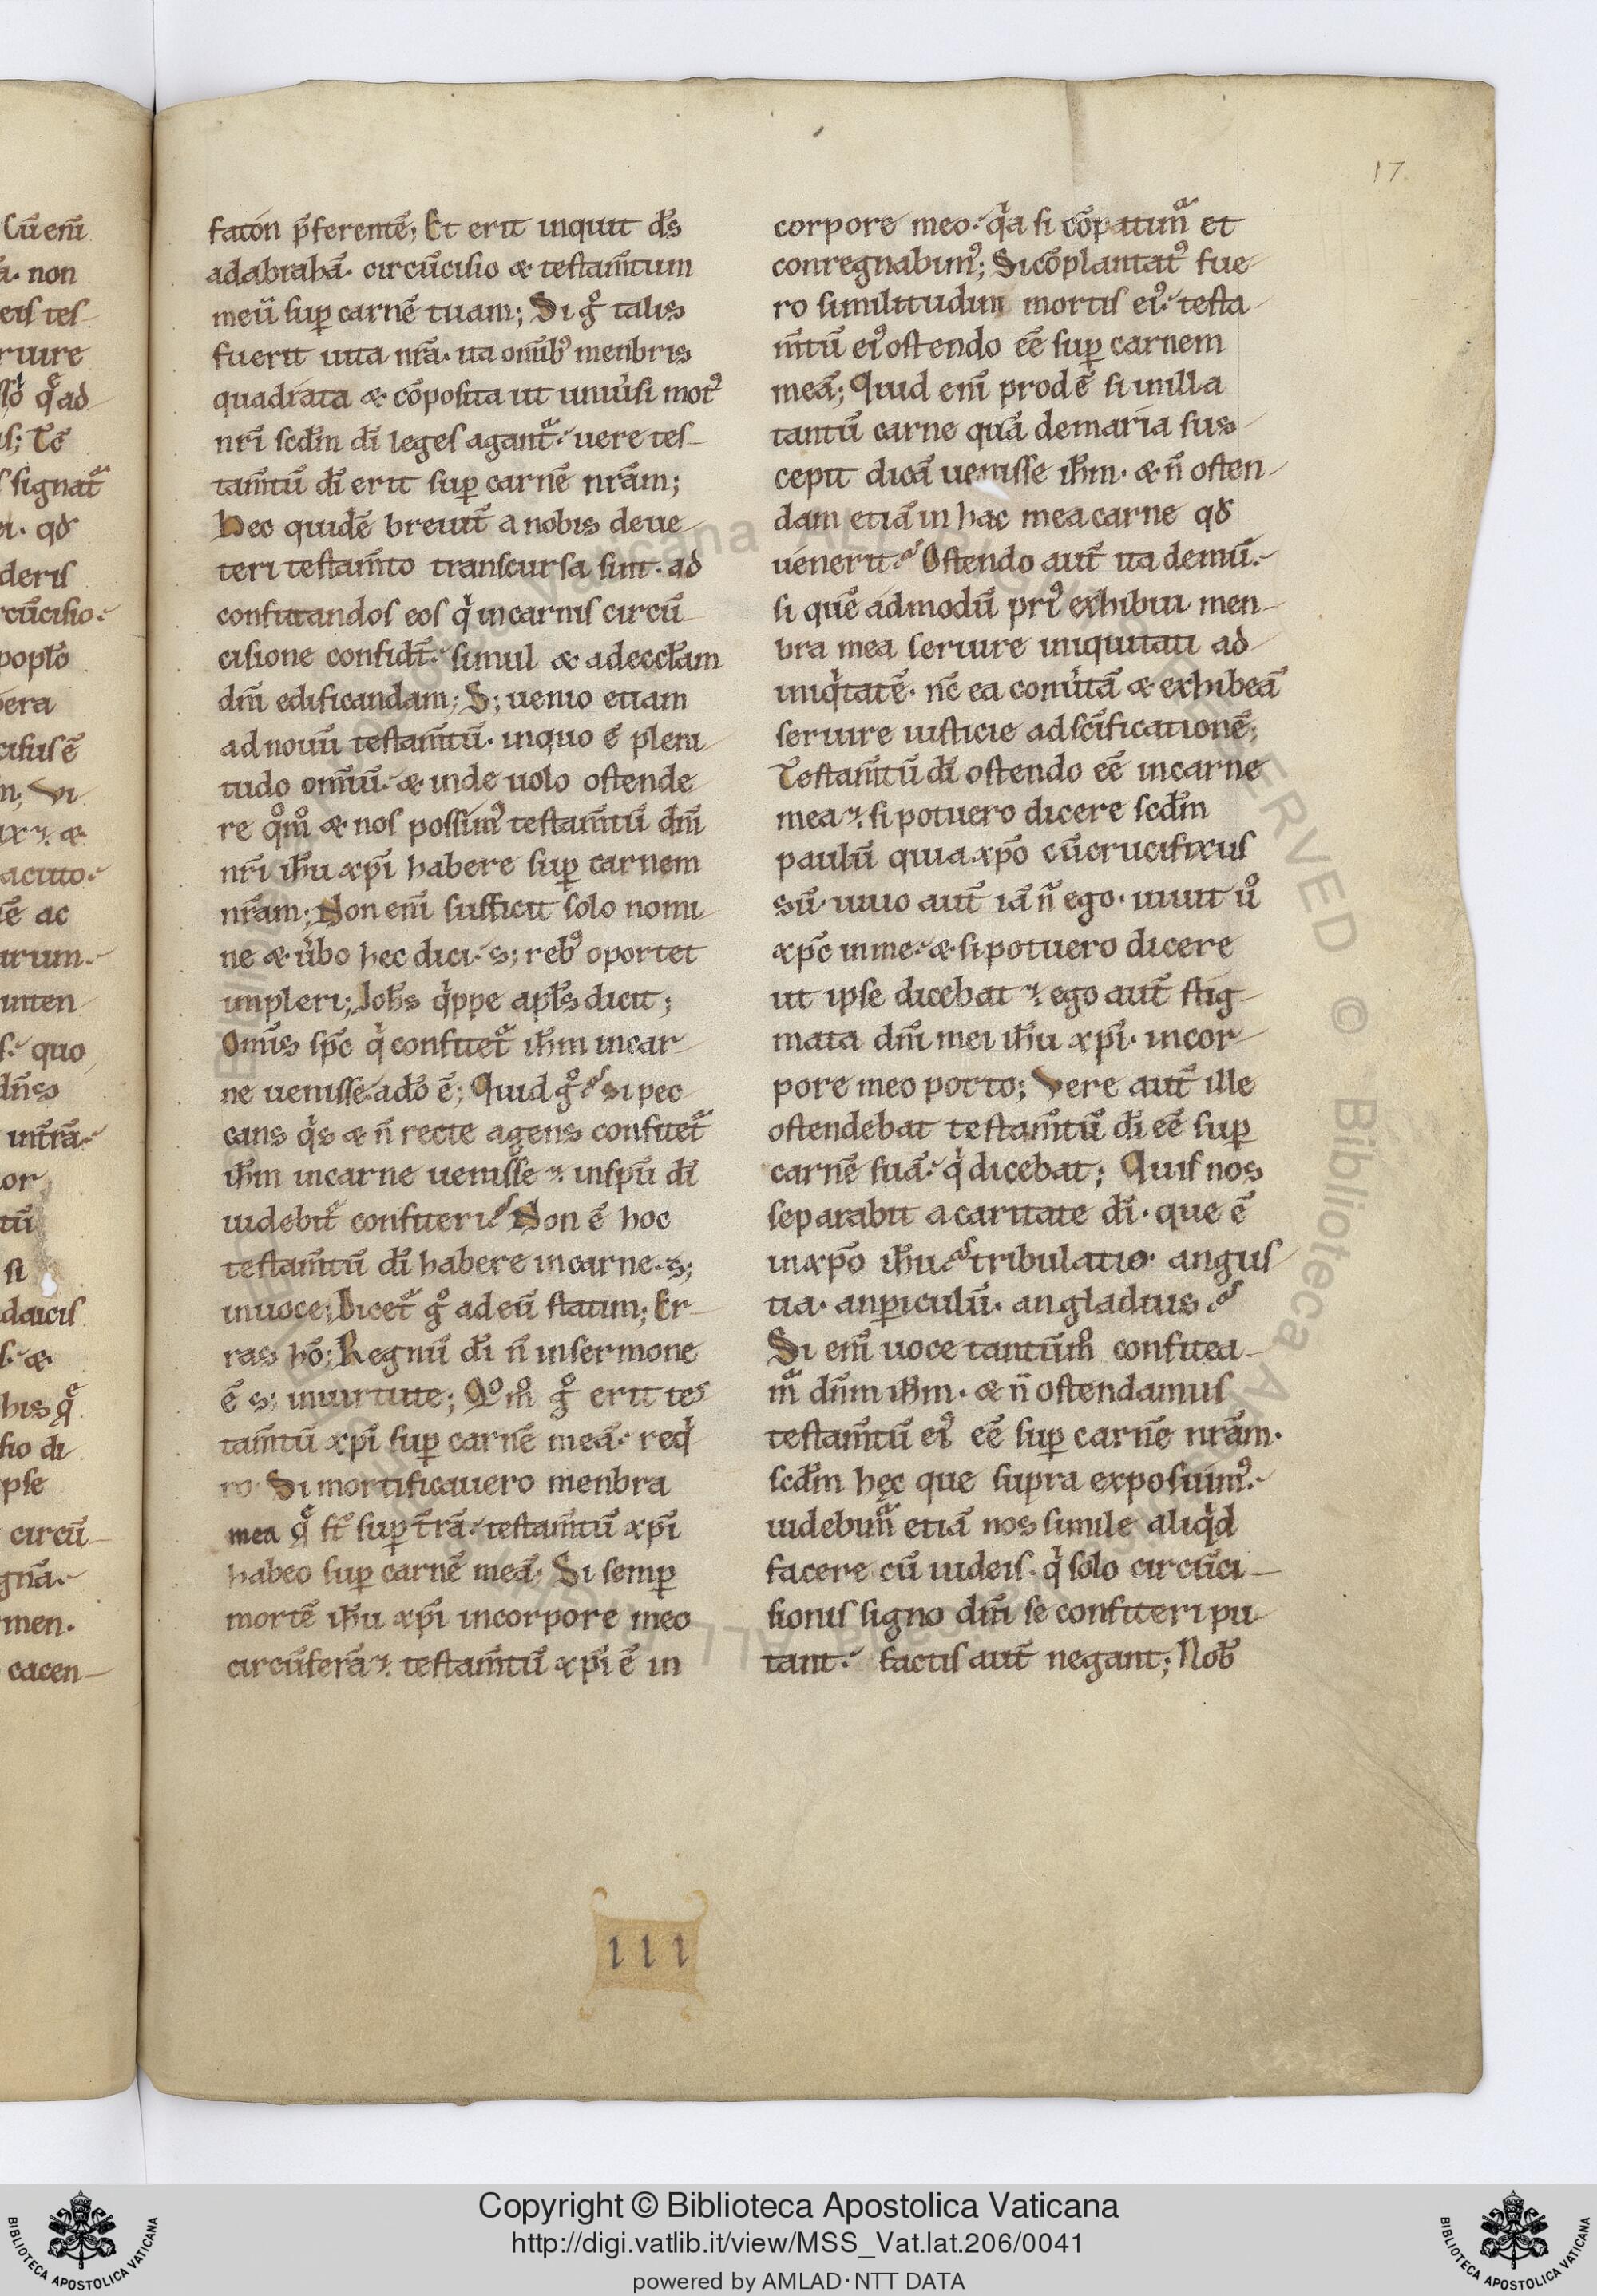 17
fatōn p̄ferentē; Et erit inquit d̄s
adabrahā· circūcisio & testam̄tum
meū suꝑ carnē tuam; Si gͦ talis
fuerit uita nr̄a· ita omīb⁹ menbris
quadrata & cōposita ut uniūsi mot⁹
nr̄i scd̄m dī leges agant᷑· uere tes-
tam̄tū dī erit suꝑ carnē nr̄am;
Hec quidē breuit̄ a nobis deue
teri testam̄to transcursa sunt· ad
confutandos eos qͥ incarnis circū
cisione confidt̄· simul & adeccl̄am
dn̄i edificandam; S; uenio etiam
ad nouū testam̄tū· inquo ē pleni
tudo omīū· & inde uolo ostende
re qͦmͦ & nos possim⁹ testam̄tū dn̄i
nr̄i ih̄u xp̄i habere suꝑ carnem
nr̄am; Non enī sufficit solo nomi
ne & ūbo hec dici· s; reb⁹ oportet
inpleri; Ioh̄s qͥppe apl̄s dicit;
Omīs sp̄c qͥ confitet᷑ ih̄m incar-
ne uenisse· adō ē; Quid gͦ? si pec
cans qͥs & n̄ recte agens confitet᷑
ih̄m incarne uenisse· inspū dī
uidebit᷑ confiteri? Non ē hoc
testam̄tū dī habere incarne· s;
inuoce; Dicet᷑ gͦ ad eū statim; Er-
ras hō; Regnū dī n̄ insermone
ē s; inuirtute; Qͦmͦ gͦ erit tes
tam̄tū xp̄i suꝑ carnē meā· reqͥ
ro· Si mortificauero menbra
mea qͣ st̄ suꝑ t̄rā· testam̄tū xp̄i
habeo suꝑ carnē meā· Si semꝑ
mortē ih̄u xp̄i incorpore meo
circūferā· testam̄tū xp̄i ē in
corpore meo· qͥa si cōpatim᷑ et
conregnabim⁹; Sicōplantat⁹ fue
ro similitudini mortis ei⁹· testa
m̄tū ei⁹ ostendo eē suꝑ carnem
meā; Quid enī prodē si inilla
tantū carne quā demaria sus-
cepit dicā uenisse ih̄m· & n̄ osten-
dam etiā in hac mea carne qd̄
uenerit? Ostendo aut̄ ita demū·
si quē admodū pri⁹ exhibui men-
bra mea seruire iniquitati ad
iniqͥtatē· nc̄ ea conūtā & exhibeā
seruire iusticie adsc̄ificationē;
Testam̄tū dī ostendo eē incarne
mea· si potuero dicere scd̄m
paulū quia xp̄o cūcrucifixus
sū· uiuo aut̄ iā n̄ ego· uiuit ūͦ
xp̄c inme· & si potuero dicere
ut ipse dicebat· ego aut̄ stig-
mata dn̄i mei ih̄u xp̄i· incor-
pore meo porto; Vere aut̄ ille
ostendebat testam̄tū dī eē suꝑ
carnē suā· qͥ dicebat; Quis nos
separabit a caritate dī· que ē
inxp̄o ih̄u? tribulatio· angus
tia· anꝑiculū· angladius?
Si enī uoce tantūmͦ confitea-
m᷑ dn̄m ih̄m· & n̄ ostendamus
testam̄tū ei⁹ eē suꝑ carnē nr̄am·
scd̄m hęc que supra exposuim⁹·
uidebim᷑ etiā nos simile aliqͥd
facere cū iudeis· qͥ solo circūci-
sionis signo dn̄i se confiteri pu
tant· factis aut̄ negant; Nob̄
III
Copyright © Biblioteca Apostolica Vaticana
http://digi.vatlib.it/view/MSS_Vat.lat.206/0041
powered by AMLAD·NTT DATA
BIBLIOTECA APOSTOLICA VATICANA
BIBLIOTECA APOSTOLICA VATICANA